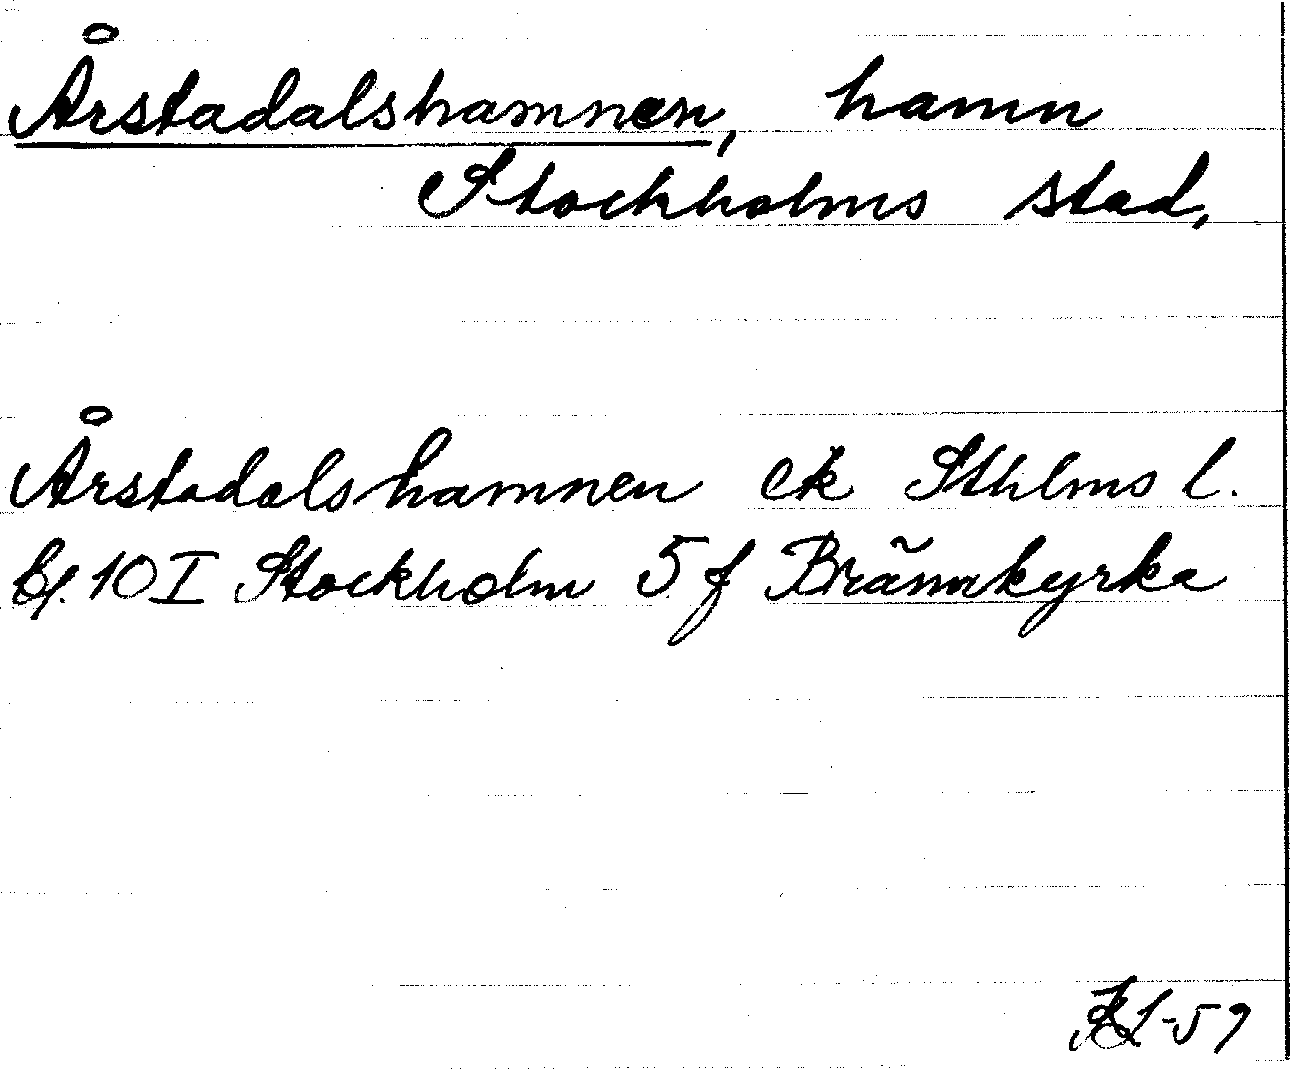 Årstadalshamnen, hamn
Stockholms stad,
Årstadalshamnen ek Sthlms l.
bl. 10 I Stockholm 5 f Brännkyrka
-59